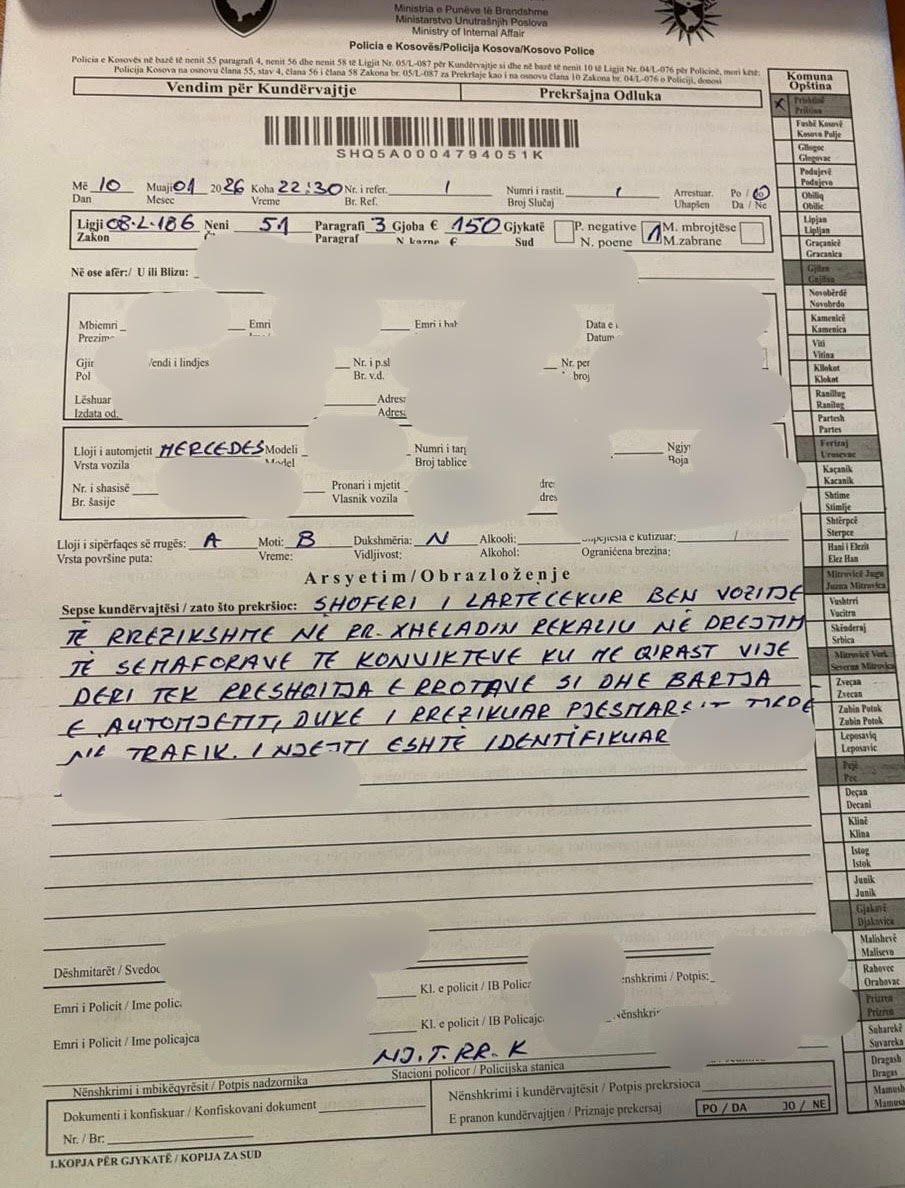 Ministria e Punëve të Brendshme
Ministarstvo Unutrašnjih Poslova
Ministry of Internal Affair
Policia e Kosovës/Policija Kosova/Kosovo Police
Policia e Kosovës në bazë të nenit 55 paragrafi 4, nenit 56 dhe nenit 58 të Ligjit Nr. 05/L-087 për Kundërvajtje si dhe në bazë të nenit 10 të Ligjit Nr. 04/L-076 për Policinë, mori këtë:
Policija Kosova na osnovu člana 55, stav 4, člana 56 i člana 58 Zakona br. 05/L-087 za Prekršaje kao i na osnovu člana 10 Zakona br. 04/L-076 o Policiji, donosi
Vendim për Kundërvajtje Prekršajna Odluka
SHQ5A0004794051K
Më 10 Muaji 01 2026 Koha 22:30 Nr. i refer. / Numri i rastit. / Arrestuar. Po / Jo
Dan Mesec Vreme Br. Ref. Broj Slučaj Uhapšen Da / Ne
Ligji 08-L-186 Neni 51 Paragrafi 3 Gjoba € 150 Gjykatë P. negative 1 M. mbrojtëse
Zakon Paragraf N kazne € Sud N. poene M.zabrane
Në ose afër:/ U ili Blizu:
Mbiemri Emri Emri i Data e
Prezim Datum
Gjir /endi i lindjes Nr. i p.sl Nr. per
Pol Br. v.d. broj
Lëshuar Adres
Izdata od. Adres
Lloji i automjetit MERCEDES Modeli Numri i targ Ngjy
Vrsta vozila Model Broj tablice Boja
Nr. i shasisë Pronari i mjetit dre
Br. šasije Vlasnik vozila dres
Lloji i sipërfaqes së rrugës: A Moti: B Dukshmëria: N Alkooli: e kufizuar: /
Vrsta površine puta: Vreme: Vidljivost: Alkohol: Ograničena brezina:
Arsyetim/Obrazloženje
Sepse kundërvajtësi / zato što prekršioc: SHOFERI I LARTECEKUR BEN VOZITJE
TË RREZIKSHME NË RR. XHELADIN REKALIU NË DREJTIM
TË SEMAFORAVE TË KONVIKTEVE KU ME QIRAST VIJE
DERI TEK RRESHQITJA E RROTAVE SI DHE BARTJA
E AUTOMJETIT, DUKE I RREZIKUAR PJESMARSIT TJERË
NË TRAFIK. I NJEJTI ËSHTË IDENTIFIKUAR
Dëshmitarët / Svedoc
Emri i Policit / Ime polic. Kl. e policit / IB Police ënshkrimi / Potpis:
Emri i Policit / Ime policajca Kl. e policit / IB Policajc Nënshkri
NJ.T.RR.K
Nënshkrimi i mbikëqyrësit / Potpis nadzornika Stacioni policor / Policijska stanica
Dokumenti i konfiskuar / Konfiskovani dokument Nënshkrimi i kundërvajtësit / Potpis prekrsioca
Nr. / Br: E pranon kundërvajtjen / Priznaje prekersaj PO / DA JO / NE
1.KOPJA PËR GJYKATË / KOPIJA ZA SUD
Komuna
Opština
X Prishtinë
Priština
Fushë Kosovë
Kosova Polje
Gllogoc
Glogovac
Podujevë
Podujevo
Obiliq
Obilic
Lipjan
Lipljan
Graçanicë
Gracanica
Gjilan
Gnjilan
Novobërdë
Novobrdo
Kamenicë
Kamenica
Viti
Vitina
Kllokot
Klokot
Ranillug
Ranilug
Partesh
Partes
Ferizaj
Urosevac
Kaçanik
Kacanik
Shtime
Stimlje
Shtërpcë
Sterpce
Hani i Elezit
Elez Han
Mitrovicë Jugu
Juzna Mitrovica
Vushtrri
Vucitrn
Skënderaj
Srbica
Mitrovicë Veri.
Severna Mitrovica
Zveçan
Zvecan
Zubin Potok
Zubin Potok
Leposaviq
Leposavic
Pejë
Pec
Deçan
Decani
Klinë
Klina
Istog
Istok
Junik
Junik
Gjakovë
Djakovica
Malishevë
Malisevo
Rahovec
Orahovac
Prizren
Prizren
Suharekë
Suvareka
Dragash
Dragas
Mamush
Mamusa